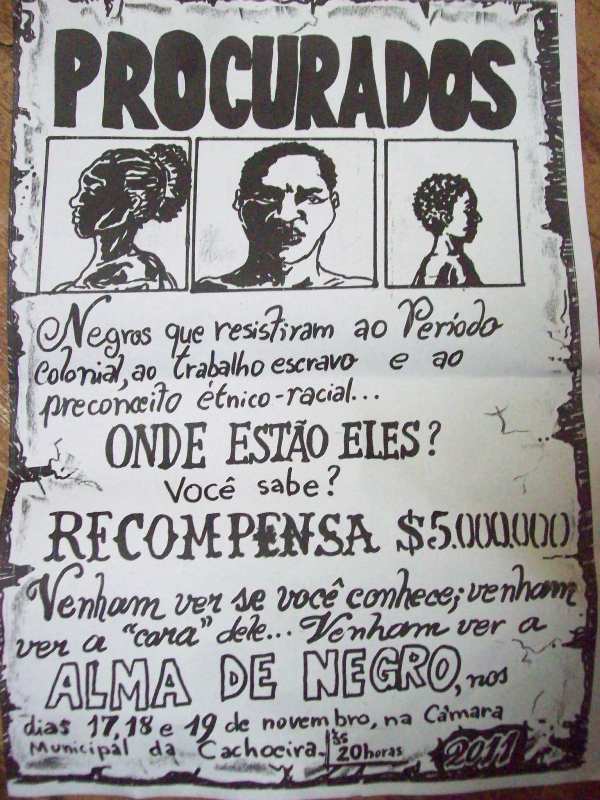 PROCURADOS
Negros que resistiram ao Período
Colonial, ao trabalho escravo e ao
preconceito étnico-racial...
ONDE ESTÃO ELES?
Você sabe?
RECOMPENSA $5.000.000
Venham ver se você conhece; venham
ver a "cara" dele... Venham ver a
ALMA DE NEGRO, nos
dias 17, 18 e 19 de novembro, na Câmara
Municipal da Cachoeira. às 20horas
2011